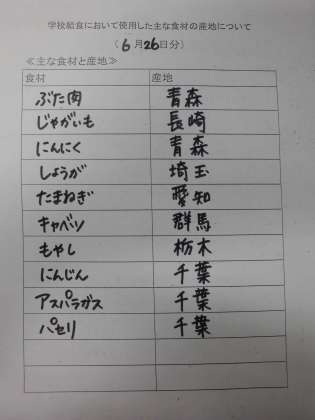 学校給食において使用した主な食材の産地について
(6月26日分)
≪主な食材と産地≫
食材 産地
ぶた肉 青森
じゃがいも 長崎
にんにく 青森
しょうが 埼玉
たまねぎ 愛知
キャベツ 群馬
もやし 栃木
にんじん 千葉
アスパラガス 千葉
パセリ 千葉